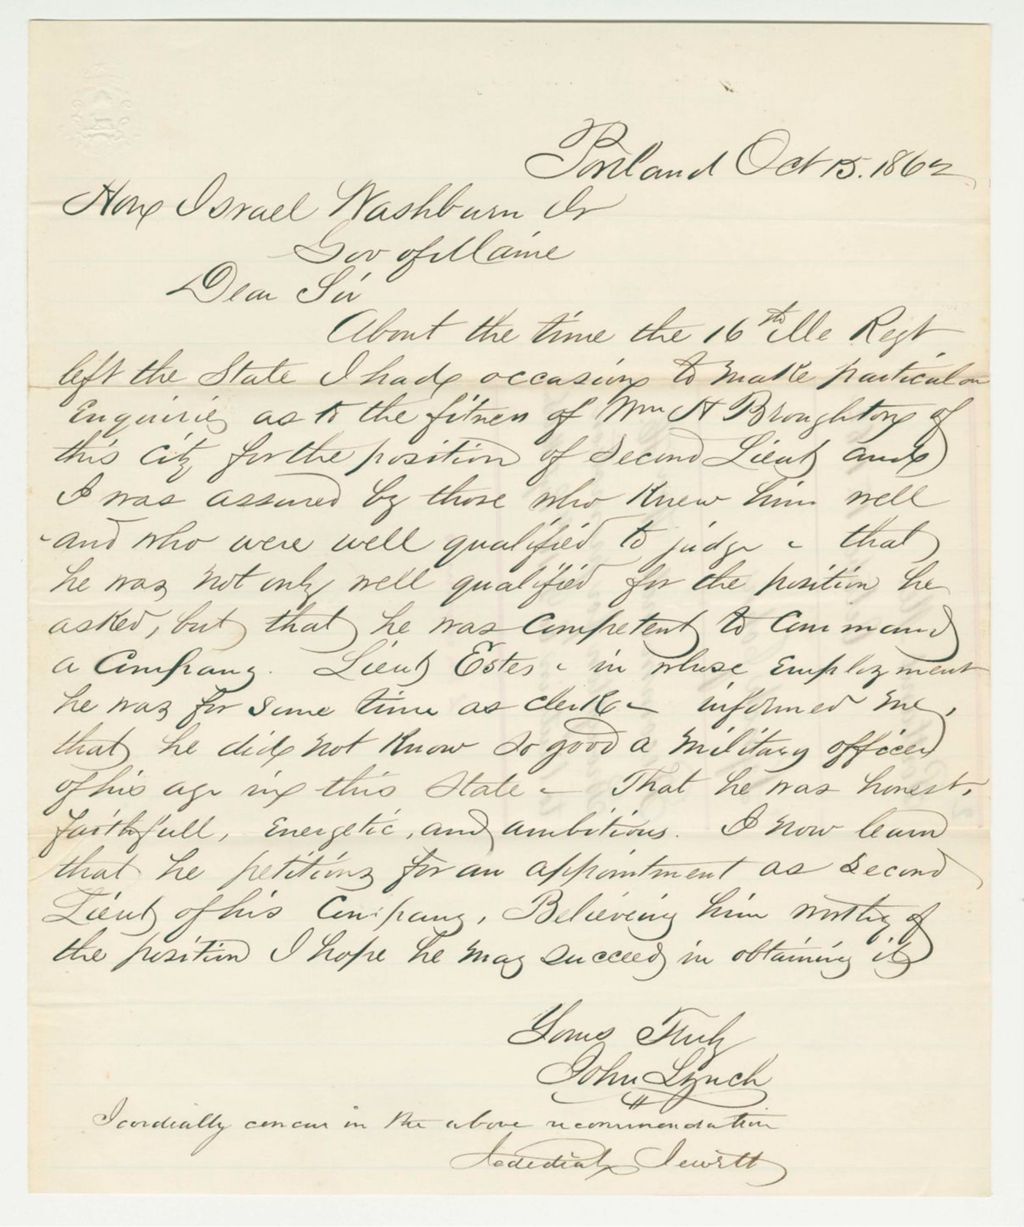 Portland Oct 15. 1862
Hon Israel Washburn Jr
Gov of Maine
Dear Sir
About the time the 16th Me Regt
left the State I had occasion to make particular
Enquiries as to the fitness of Wm H Broughton of
this City for the position of Second Lieut and
I was assured by those who knew him well
- and who were well qualified to judge - that
he was not only well qualified for the position he
asked, but that he was Competent to Command
a Company. Lieut Estes - in whose Employment
he was for some time as clerk - informed me,
that he did not know so good a military officer
of his age in this State - That he was honest,
faithfull, Energetic, and ambitious. I now learn
that he petitions for an appointment as Second
Lieut of his Company, Believing him worthy of
the position I hope he may succeed in obtaining it
Yours Truly
John Lynch
I cordially concur in the above recommendation
Jedediah Jewett